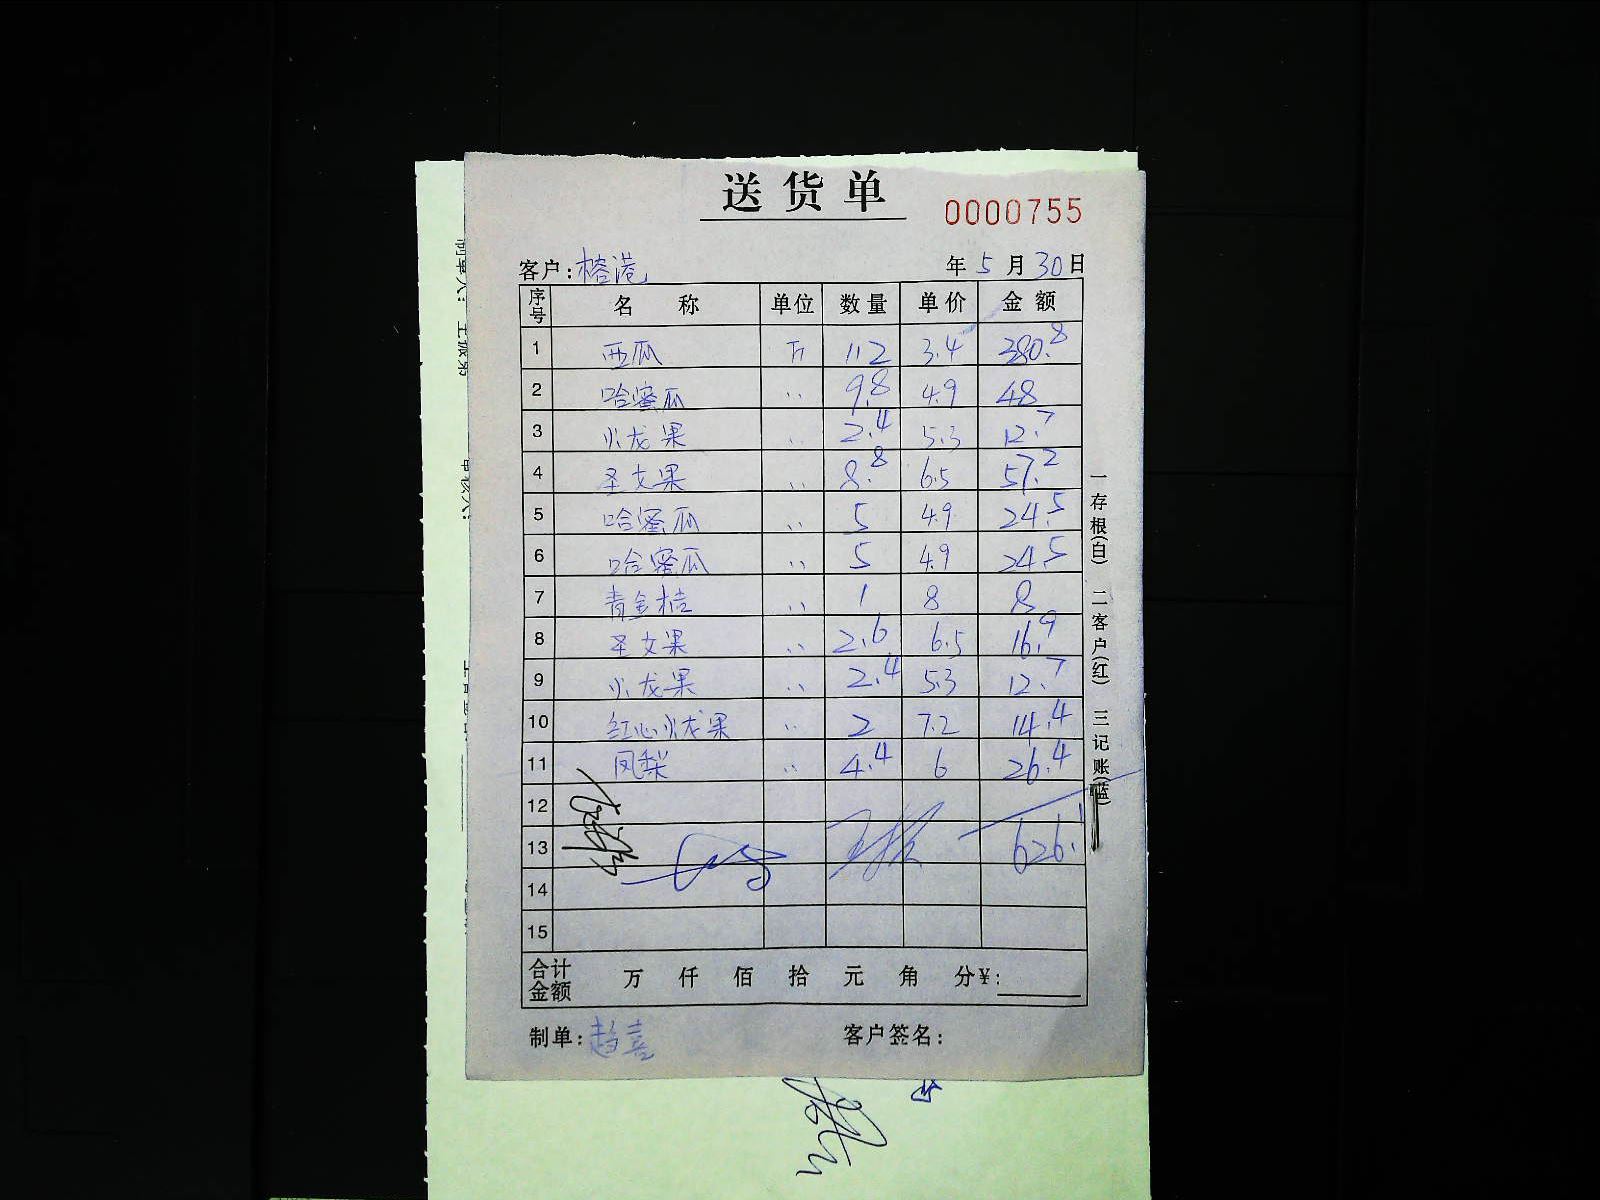 送货单
0000755
客户:榕港 年 5 月 30 日
序号 名称 单位 数量 单价 金额
1 西瓜 斤 112 3.4 380.8
2 哈蜜瓜 〃 9.8 4.9 48
3 火龙果 〃 2.4 5.3 12.7
4 圣女果 〃 8.8 6.5 57.2
5 哈蜜瓜 〃 5 4.9 24.5
6 哈蜜瓜 〃 5 4.9 24.5
7 青金桔 〃 1 8 8
8 圣女果 〃 2.6 6.5 16.9
9 火龙果 〃 2.4 5.3 12.7
10 红心火龙果 〃 2 7.2 14.4
11 凤梨 〃 4.4 6 26.4
12
13 626.1
14
15
合计金额 万 仟 佰 拾 元 角 分¥:
制单:赵喜 客户签名:
一存根(白) 二客户(红) 三记账(蓝)